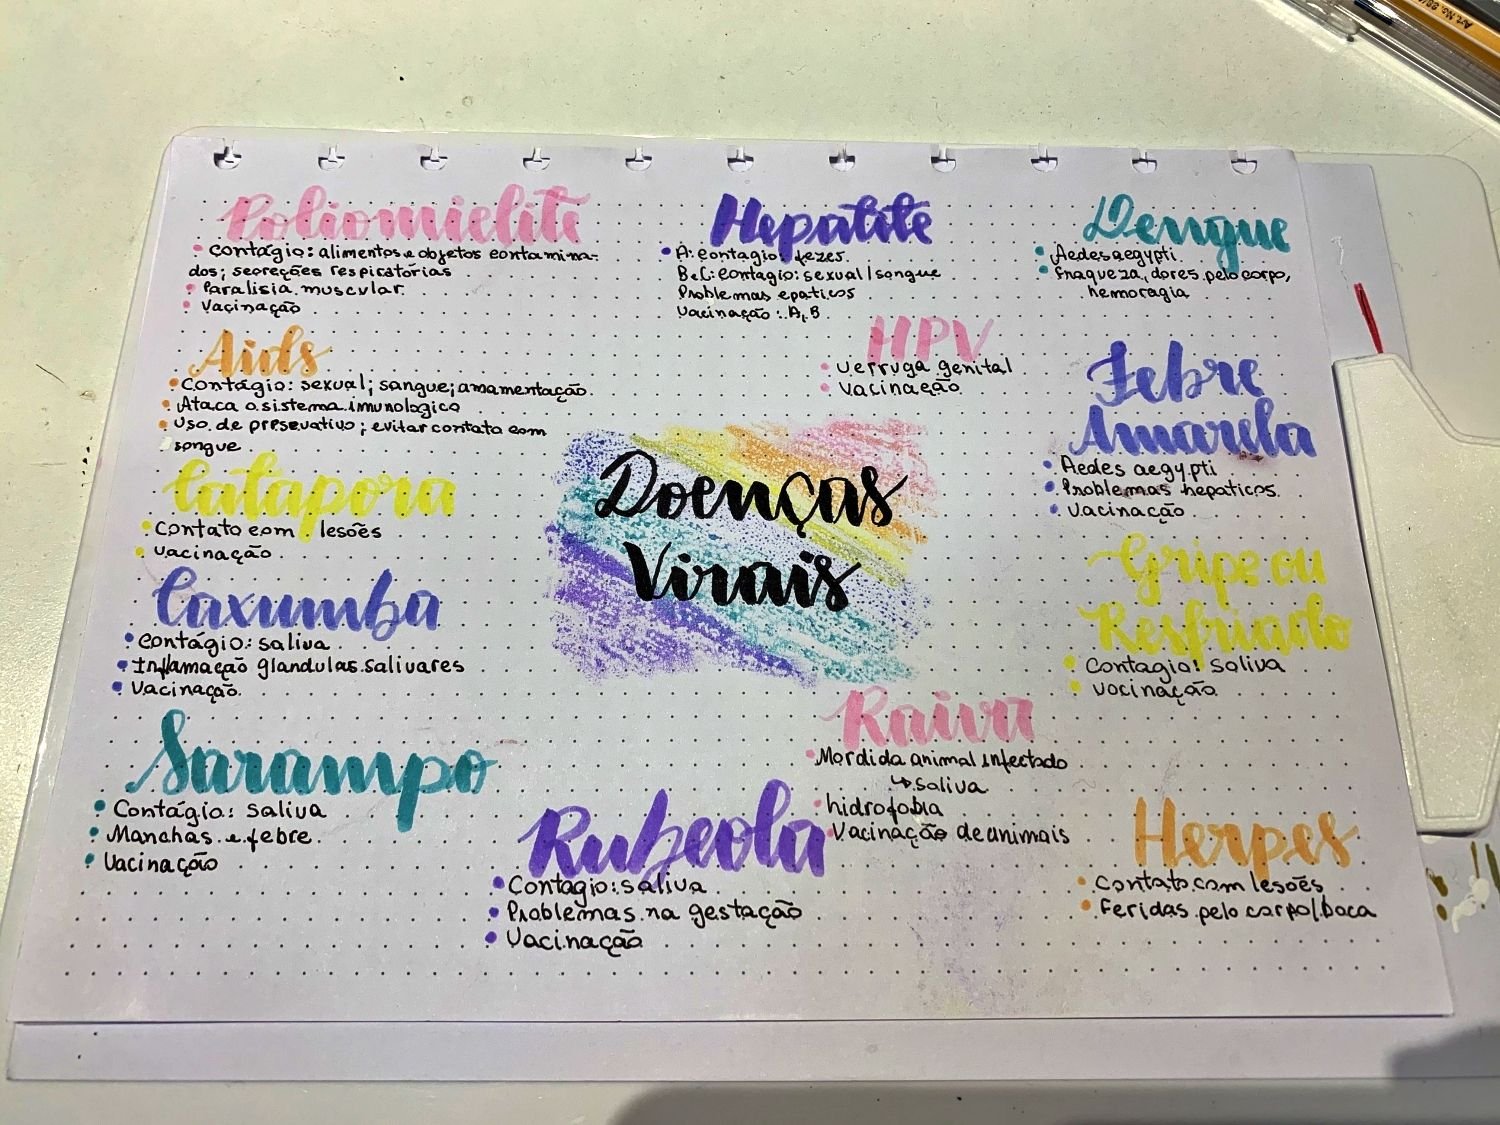 Poliomielite
Contágio: alimentos e objetos contamina-
dos; secreções respiratórias
Paralisia muscular
Vacinação
Hepatite
A: contagio: fezes.
B e C: contagio: sexual/sangue
Problemas epaticos
Vacinação: A, B
Dengue
Aedes aegypti
Fraqueza, dores pelo corpo,
hemoragia
Aids
Contágio: sexual; sangue; amamentação
Ataca o sistema imunologico
Uso de presevativo; evitar contato com
sangue
HPV
Verruga genital
Vacinação
Febre
Amarela
Aedes aegypti
Problemas hepaticos
Vacinação
Catapora
Contato com lesões
Vacinação
Doenças
Virais
Gripe ou
Resfriado
Contagio: saliva
Vacinação
Caxumba
Contágio: saliva
Inflamação glandulas salivares
Vacinação
Sarampo
Contágio: saliva
Manchas e febre
Vacinação
Raiva
Mordida animal infectado
↳ saliva
hidrofobia
Vacinação de animais
Rubeola
Contagio: saliva
Problemas na gestação
Vacinação
Herpes
Contato com lesões
Feridas pelo corpo/boca